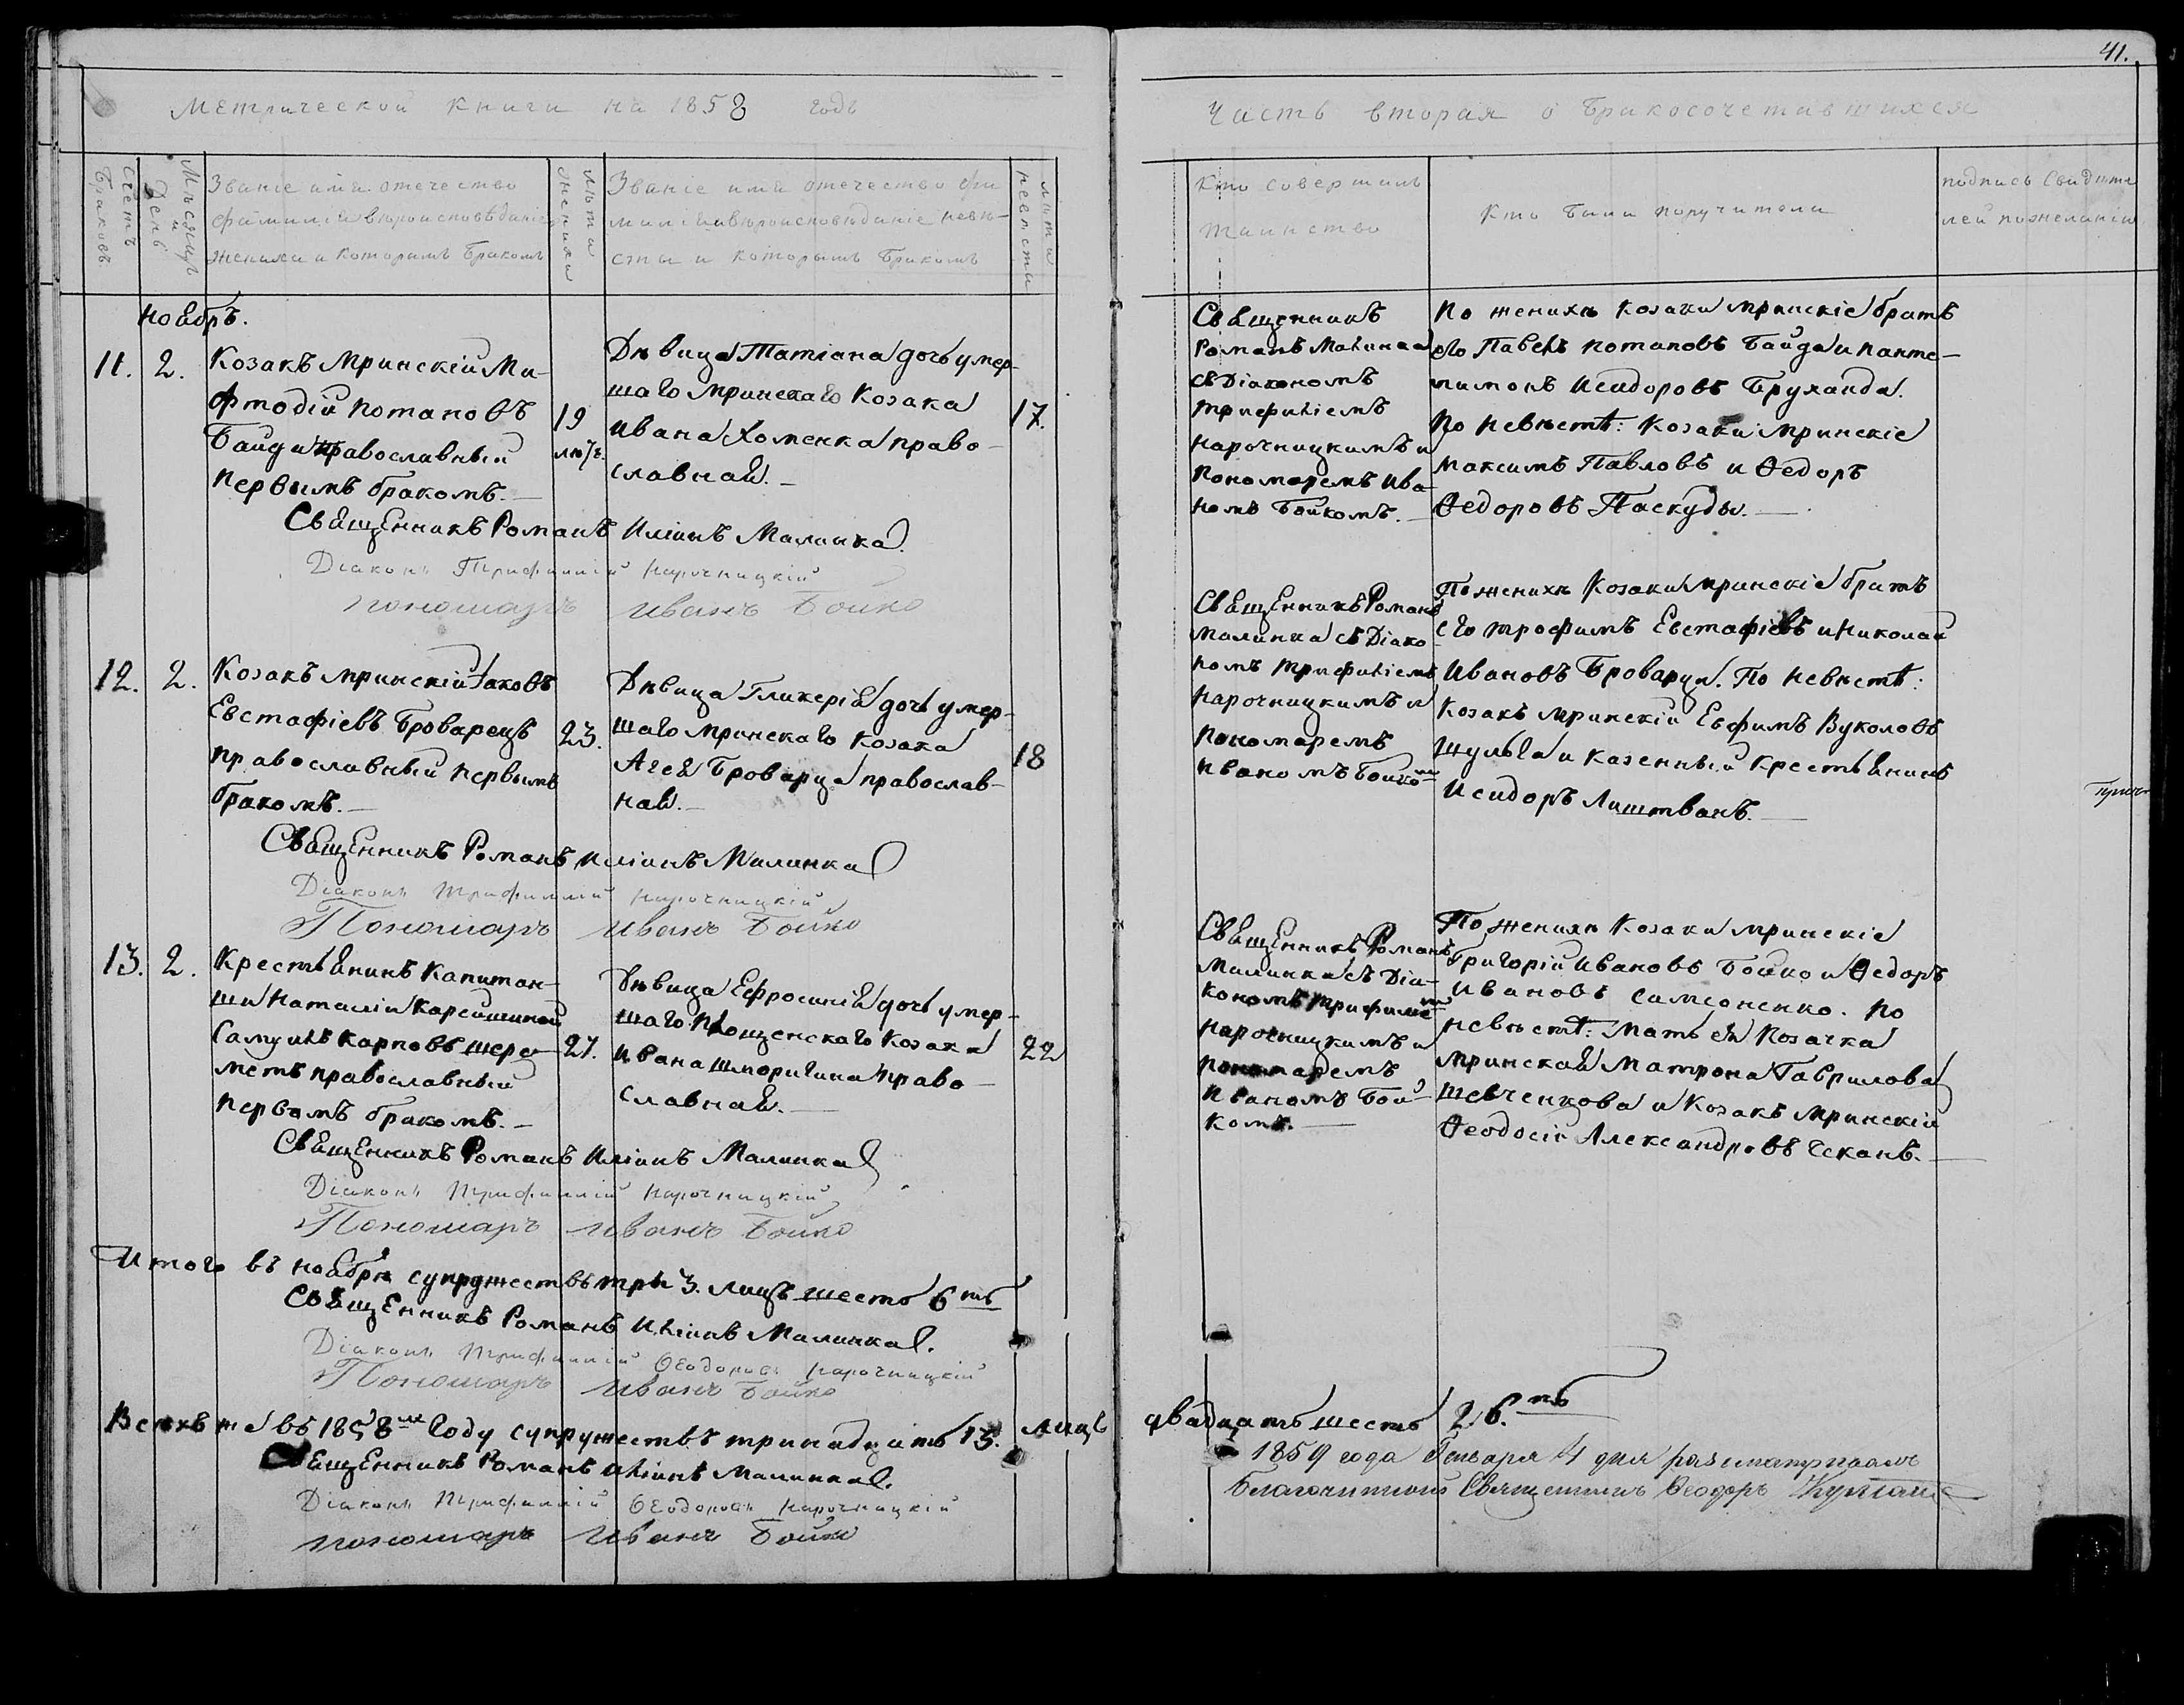 41.
Метрической книги на 1858 годъ
Часть вторая о бракосочетавшихся
Счетъ
браковъ.
Мѣсяцъ
и
день
Званіе имя отечество
фамилія и вѣроисповѣданіе
жениха и которымъ бракомъ
лѣта
жениха
Званіе имя отечество фа
милія и вѣроисповѣданіе невѣ-
сты и которымъ бракомъ
лѣта
невѣсты
Кто совершалъ
таинство
Кто были поручители
подпись свидѣте
лей по желанію
Ноябрь.
11. 2.
Козакъ Мринскій Ме-
фтодій Потаповъ
Байда православный
первымъ бракомъ.
19
Дѣвица Татіана дочь умер-
шаго мринскаго Козака
Ивана Хоменка право-
славная.
17.
Священникъ
Романъ Малинка
съ Діакономъ
Трифиліемъ
Нарочницкимъ и
Пономаремъ Ива-
номъ Бойкомъ.
По женихѣ Козаки Мринскіе братъ
его Павелъ Потаповъ Байда и Панте-
лимонъ Исидоровъ Бруханда.
По невѣстѣ: Козаки Мринскіе
Максимъ Павловъ и Ѳедоръ
Ѳедоровъ Паскуды.
Священникъ Романъ Иліинъ Малинка.
Діаконъ Трифиллій Нарочницкій
пономарь Иванъ Бойко
12. 2.
Козакъ Мринскій Іаковъ
Евстафіевъ Броварецъ
православный первымъ
бракомъ.
23.
Дѣвица Гликерія дочь умер-
шаго мринскаго Козака
Агея Броварца православ-
ная.
18
Священникъ Романъ
Малинка съ Діако-
номъ Трифиліемъ
Нарочницкимъ и
Пономаремъ
Иваномъ Бойкомъ
По женихѣ Козаки Мринскіе братъ
его Трофимъ Евстафіевъ и Николай
Ивановъ Броварцы. По невѣстѣ:
Козакъ Мринскій Евфимъ Вуколовъ
Шульга и казенный крестьянинъ
Исидоръ Лиштванъ.
Священникъ Романъ Иліинъ Малинка
Діаконъ Трифиллій Нарочницкій
Пономарь Иванъ Бойко
13. 2.
Крестьянинъ Капитан-
ши Наталіи Карейшиной
Самуилъ Карповъ Шере-
метъ православный
первомъ бракомъ.
27.
Дѣвица Ефросинія дочь умер-
шаго Площенскаго Козака
Ивана Шморигина право-
славная.
22
Священникъ Романъ
Малинка съ Діа-
кономъ Трифиліемъ
Нарочницкимъ и
пономаремъ
Иваномъ Бой-
комъ.
По женихѣ Козаки Мринскіе
Григорій Ивановъ Бойко и Ѳедоръ
Ивановъ Самсоненко. По
невѣстѣ: Мать ея Козачка
Мринская Матрона Гаврилова
Шевченкова и Козакъ Мринскій
Ѳеодосій Александровъ Чеканъ.
Священникъ Романъ Иліинъ Малинка
Діаконъ Трифиллій Нарочницкій
Пономарь Иванъ Бойко
Итого въ ноябрѣ супружествъ три 3. лицъ шесть 6ть
Священникъ Романъ Иліинъ Малинка.
Діаконъ Трифиллій Ѳеодоровъ Нарочницкій
Пономарь Иванъ Бойко
Всѣхъ же въ 1858м году супружествъ тринадцать 13. лицъ двадцать шесть 26.ть
Священникъ Романъ Иліинъ Малинка.
Діаконъ Трифиллій Ѳеодоровъ Нарочницкій
пономарь Иванъ Бойко
1859 года Генваря 4 дня разсматривалъ
Благочинный Священникъ Ѳеодоръ